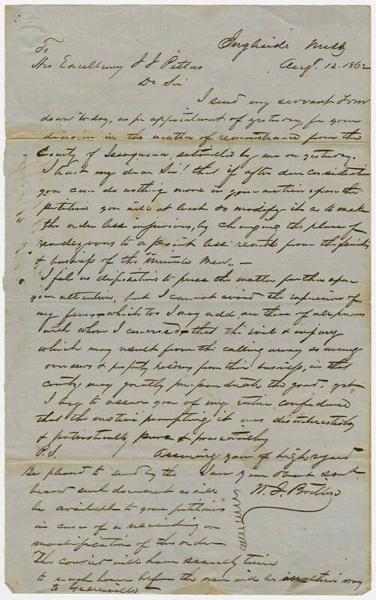 Ingleside Miss
Aug. 12. 1862
To
His Excellency J J Pettus
Dr Sir
I send my servant from
down to day, as per appointment of yesterday, for your
decision in the matter of remonstrance from the
County of Issaquena, submitted by me on yesterday.
I hope my dear Sir! that if after due consideration
you can do nothing more in your action upon the
petition you will at least so modify it as to make
the order less by changing the place of
rendezvous to a point less remote from the families
& business of the "Minute Men". —
I feel no disposition to press the matter further upon
your attention, but I cannot avoid the expression of
my fears, which too I may add, are those of all persons
with whom I conversed that the evil & injury
which may result from the calling away so many
overseers & property holders from their business, in this
county, may greatly preponderate the good — yet
I beg to assure you of my entire confidence
that the motive prompting it was disinterestedly
& patriotically pure & praiseworthy
Assuring you of high regard
I am your Obedt Servt
W. J.
P.S.
Be pleased to send by the
bearer such document as will
be available to your petitioners
in case of a rescinding or
modification of the order.
The courier will have scarcely time
to reach home before the men will be on their way
to Greenville